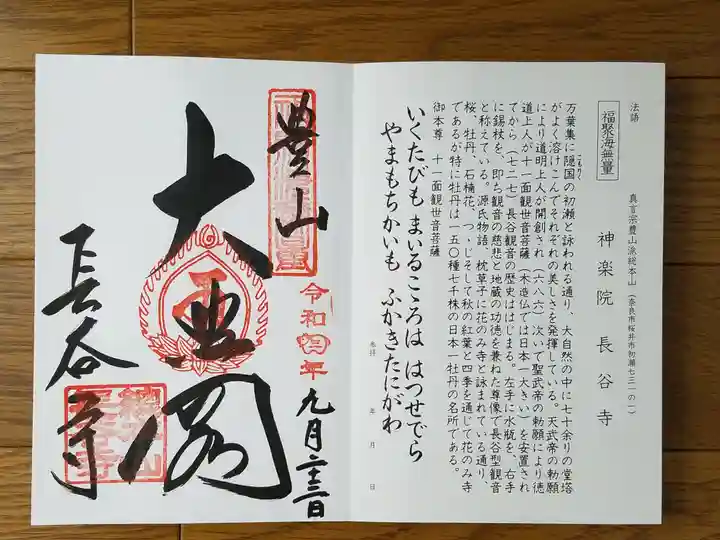 法語
福聚海無量
真言宗豊山派総本山(奈良市桜井市初瀬七三一の一)
神楽院 長谷寺
万葉集に隠国の初瀬と詠われる通り、大自然の中に七十余りの堂塔
こもりく
がよく溶けこんでそれぞれの美しさを発揮している。天武帝の勅願
により道明上人が開創され(六八六)次いで聖武帝の勅願により徳
道上人が十一面観世音菩薩(木造仏では日本一大きい)を安置され
てから(七二七)長谷観音の歴史ははじまる。左手に水瓶を、右手
に錫杖を、即ち観音の慈悲と地蔵の功徳を兼ねた尊像で長谷型観音
と称えている。源氏物語、枕草子に花のみ寺と詠まれている通り、
桜、牡丹、石楠花、つゝじそして秋の紅葉と四季を通じて花のみ寺
であるが特に牡丹は一五〇種七千株の日本一牡丹の名所である。
御本尊 十一面観世音菩薩
いくたびも まいるこころは はつせでら
やまもちかいも ふかきたにがわ
奉拝 年 月 日
豊山
令和四年
九月二十三日
大悲閣
長谷寺